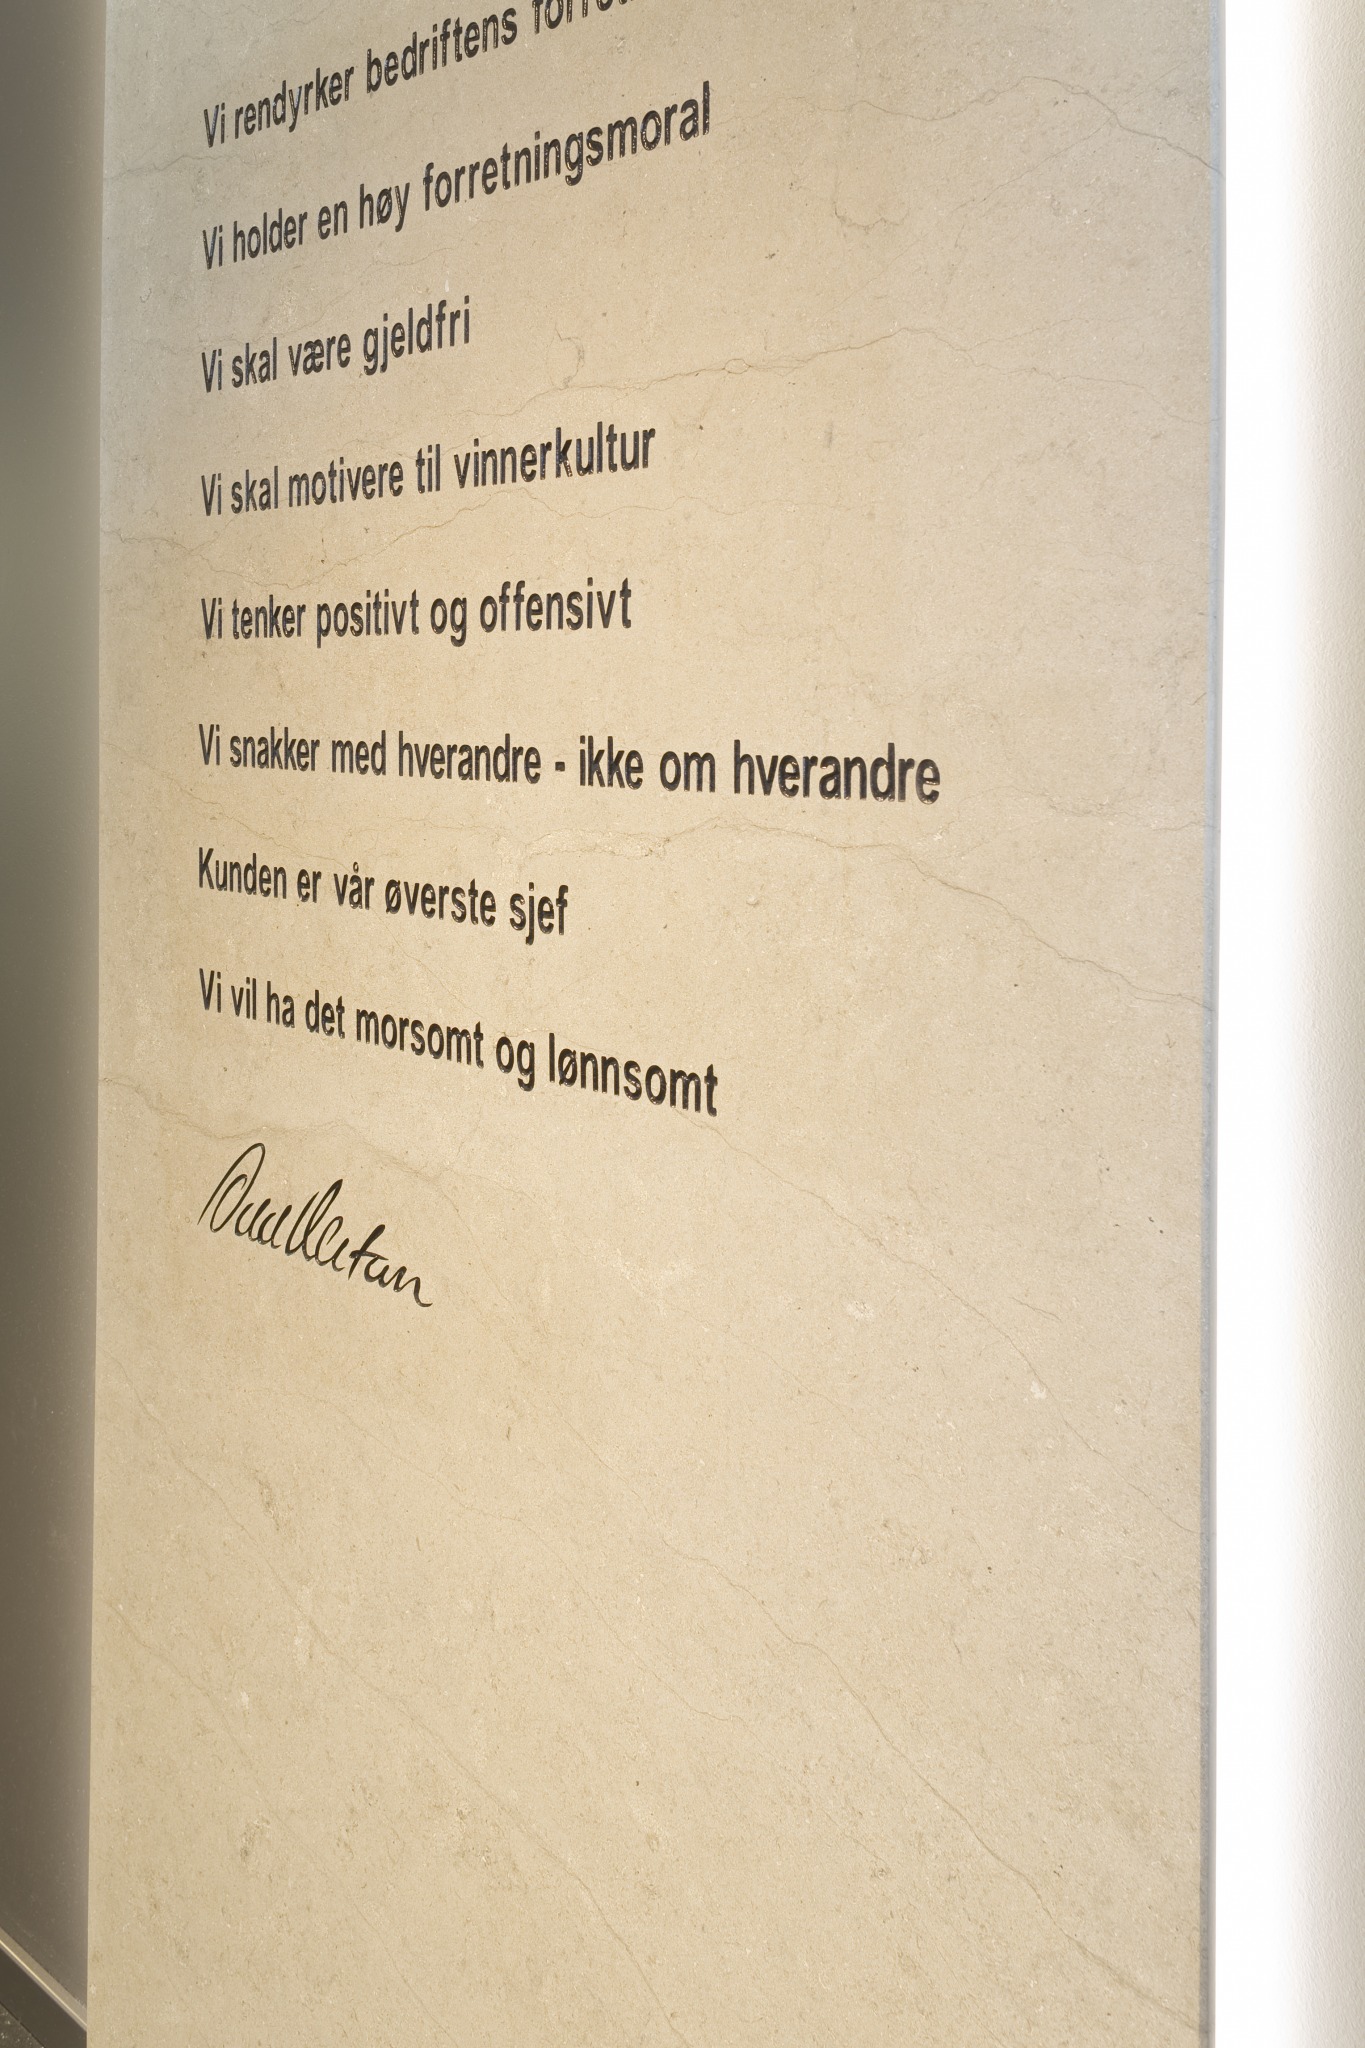 Vi rendyrker bedriftens
Vi holder en høy forretningsmoral
Vi skal være gjeldfri
Vi skal motivere til vinnerkultur
Vi tenker positivt og offensivt
Vi snakker med hverandre - ikke om hverandre
Kunden er vår øverste sjef
Vi vil ha det morsomt og lønnsomt